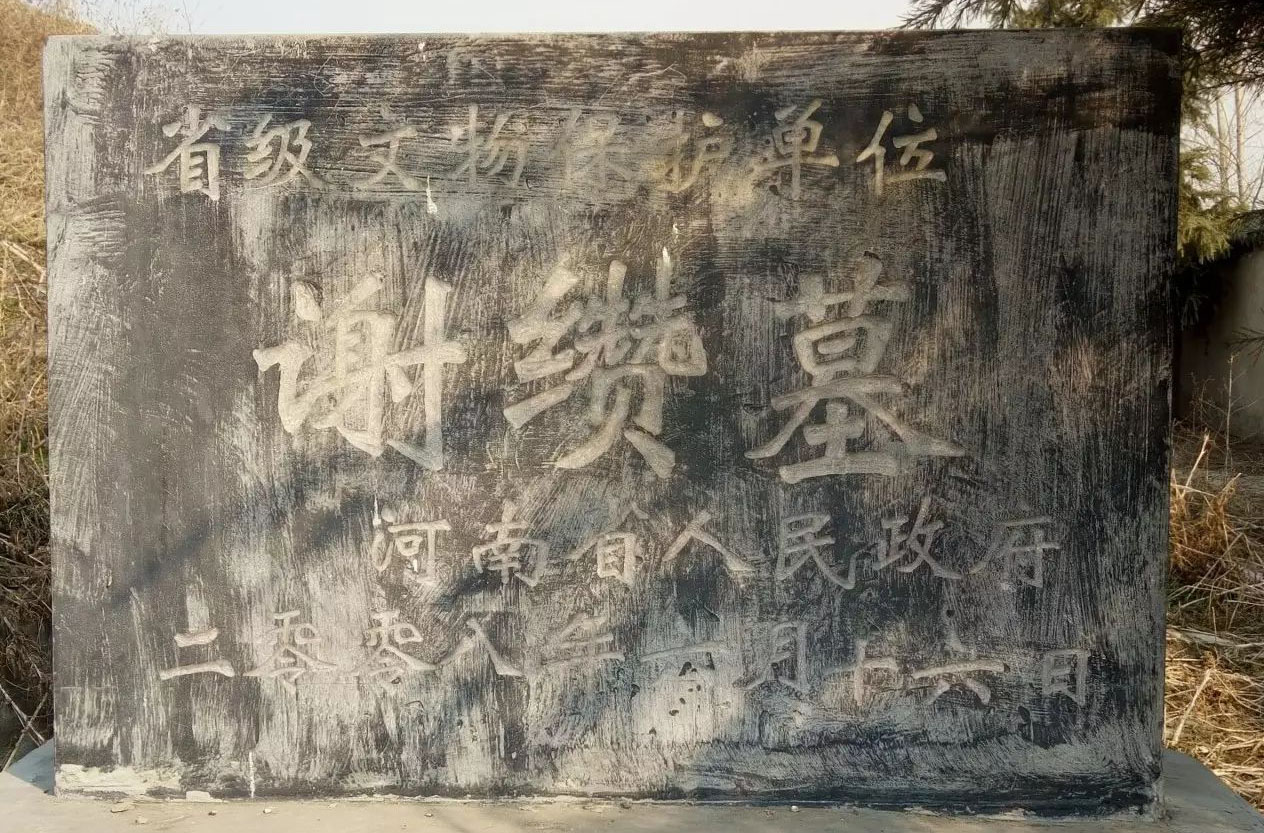 省级文物保护单位
谢缵墓
河南省人民政府
二零零八年六月十六日